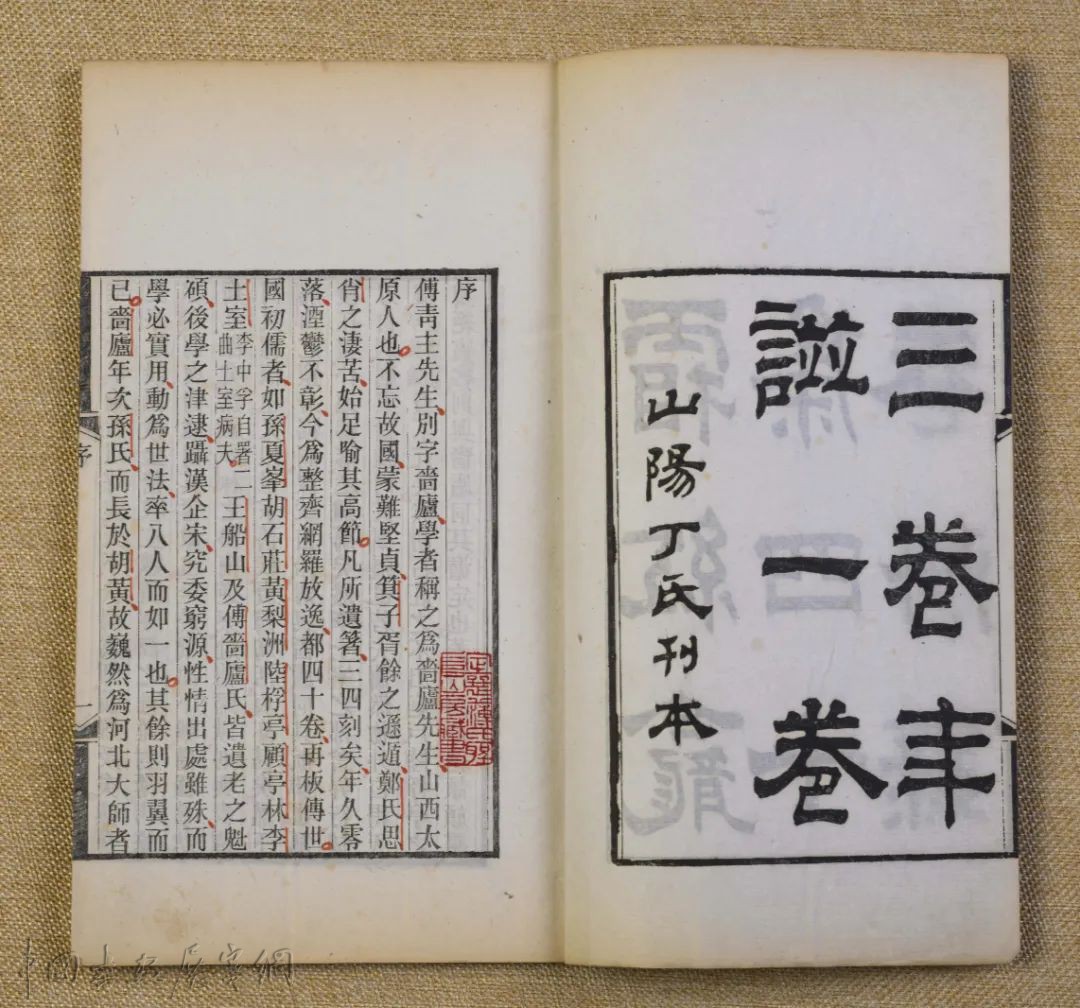 三卷年
譜一卷
山陽丁氏刊本
序
傅青主先生、別字嗇廬、學者稱之爲嗇廬先生、山西太
原人也。不忘故國、蒙難堅貞、箕子胥餘之遜遁、鄭氏思
肖之淒苦、始足喻其高節。凡所遺箸、三四刻矣、年久零
落、湮鬱不彰、今爲整齊網羅放逸、都四十卷、再板傳世。
國初儒者、如孫夏峯胡石莊黃梨洲陸桴亭顧亭林李
土室李中孚自署二曲土室病夫、王船山及傅嗇廬氏、皆遺老之魁
碩、後學之津逮、躡漢企宋、究委窮源、性情出處雖殊、而
學必實用、動爲世法、率八人而如一也。其餘則羽翼而
已。嗇廬年次孫氏、而長於胡黃、故巍然爲河北大師者
序
一